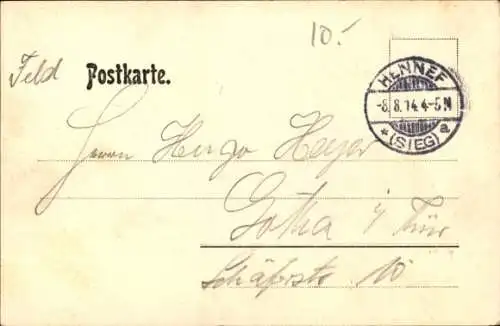 10.-
Feld Postkarte.
HENNEF
-8.8.14.4-5N
* (SIEG) a
Herrn Hugo Heyer
Gotha i/Thür
Schäferstr. 10